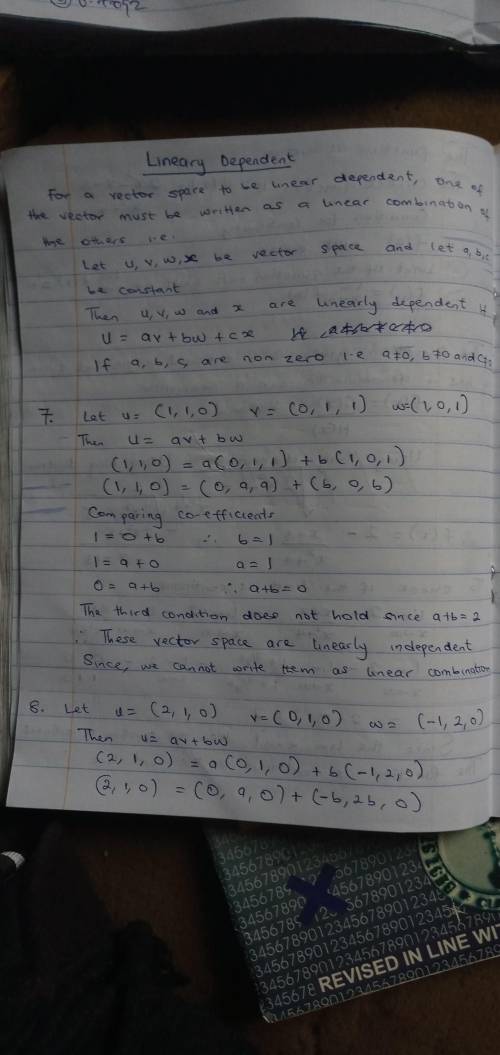 Lineary Dependent
For a vector space to be linear dependent, one of
the vector must be written as a linear combination of
the others i.e.
Let u, v, w, x be vector space and let a, b, c
be constant
Then u, v, w and x are linearly dependent if
u = av + bw + cx
If a, b, c, are non zero i.e a≠0, b≠0 and c≠0
7. Let u = (1, 1, 0) v = (0, 1, 1) w = (1, 0, 1)
Then u = av + bw
(1, 1, 0) = a(0, 1, 1) + b(1, 0, 1)
(1, 1, 0) = (0, a, a) + (b, 0, b)
Comparing co-efficients
1 = 0 + b ∴ b = 1
1 = a + 0 a = 1
0 = a + b ∴ a + b = 0
The third condition does not hold since a+b = 2
∴ These vector space are linearly independent
Since, we cannot write them as linear combination
8. Let u = (2, 1, 0) v = (0, 1, 0) w = (-1, 2, 0)
Then u = av + bw
(2, 1, 0) = a(0, 1, 0) + b(-1, 2, 0)
(2, 1, 0) = (0, a, 0) + (-b, 2b, 0)
REVISED IN LINE WIT